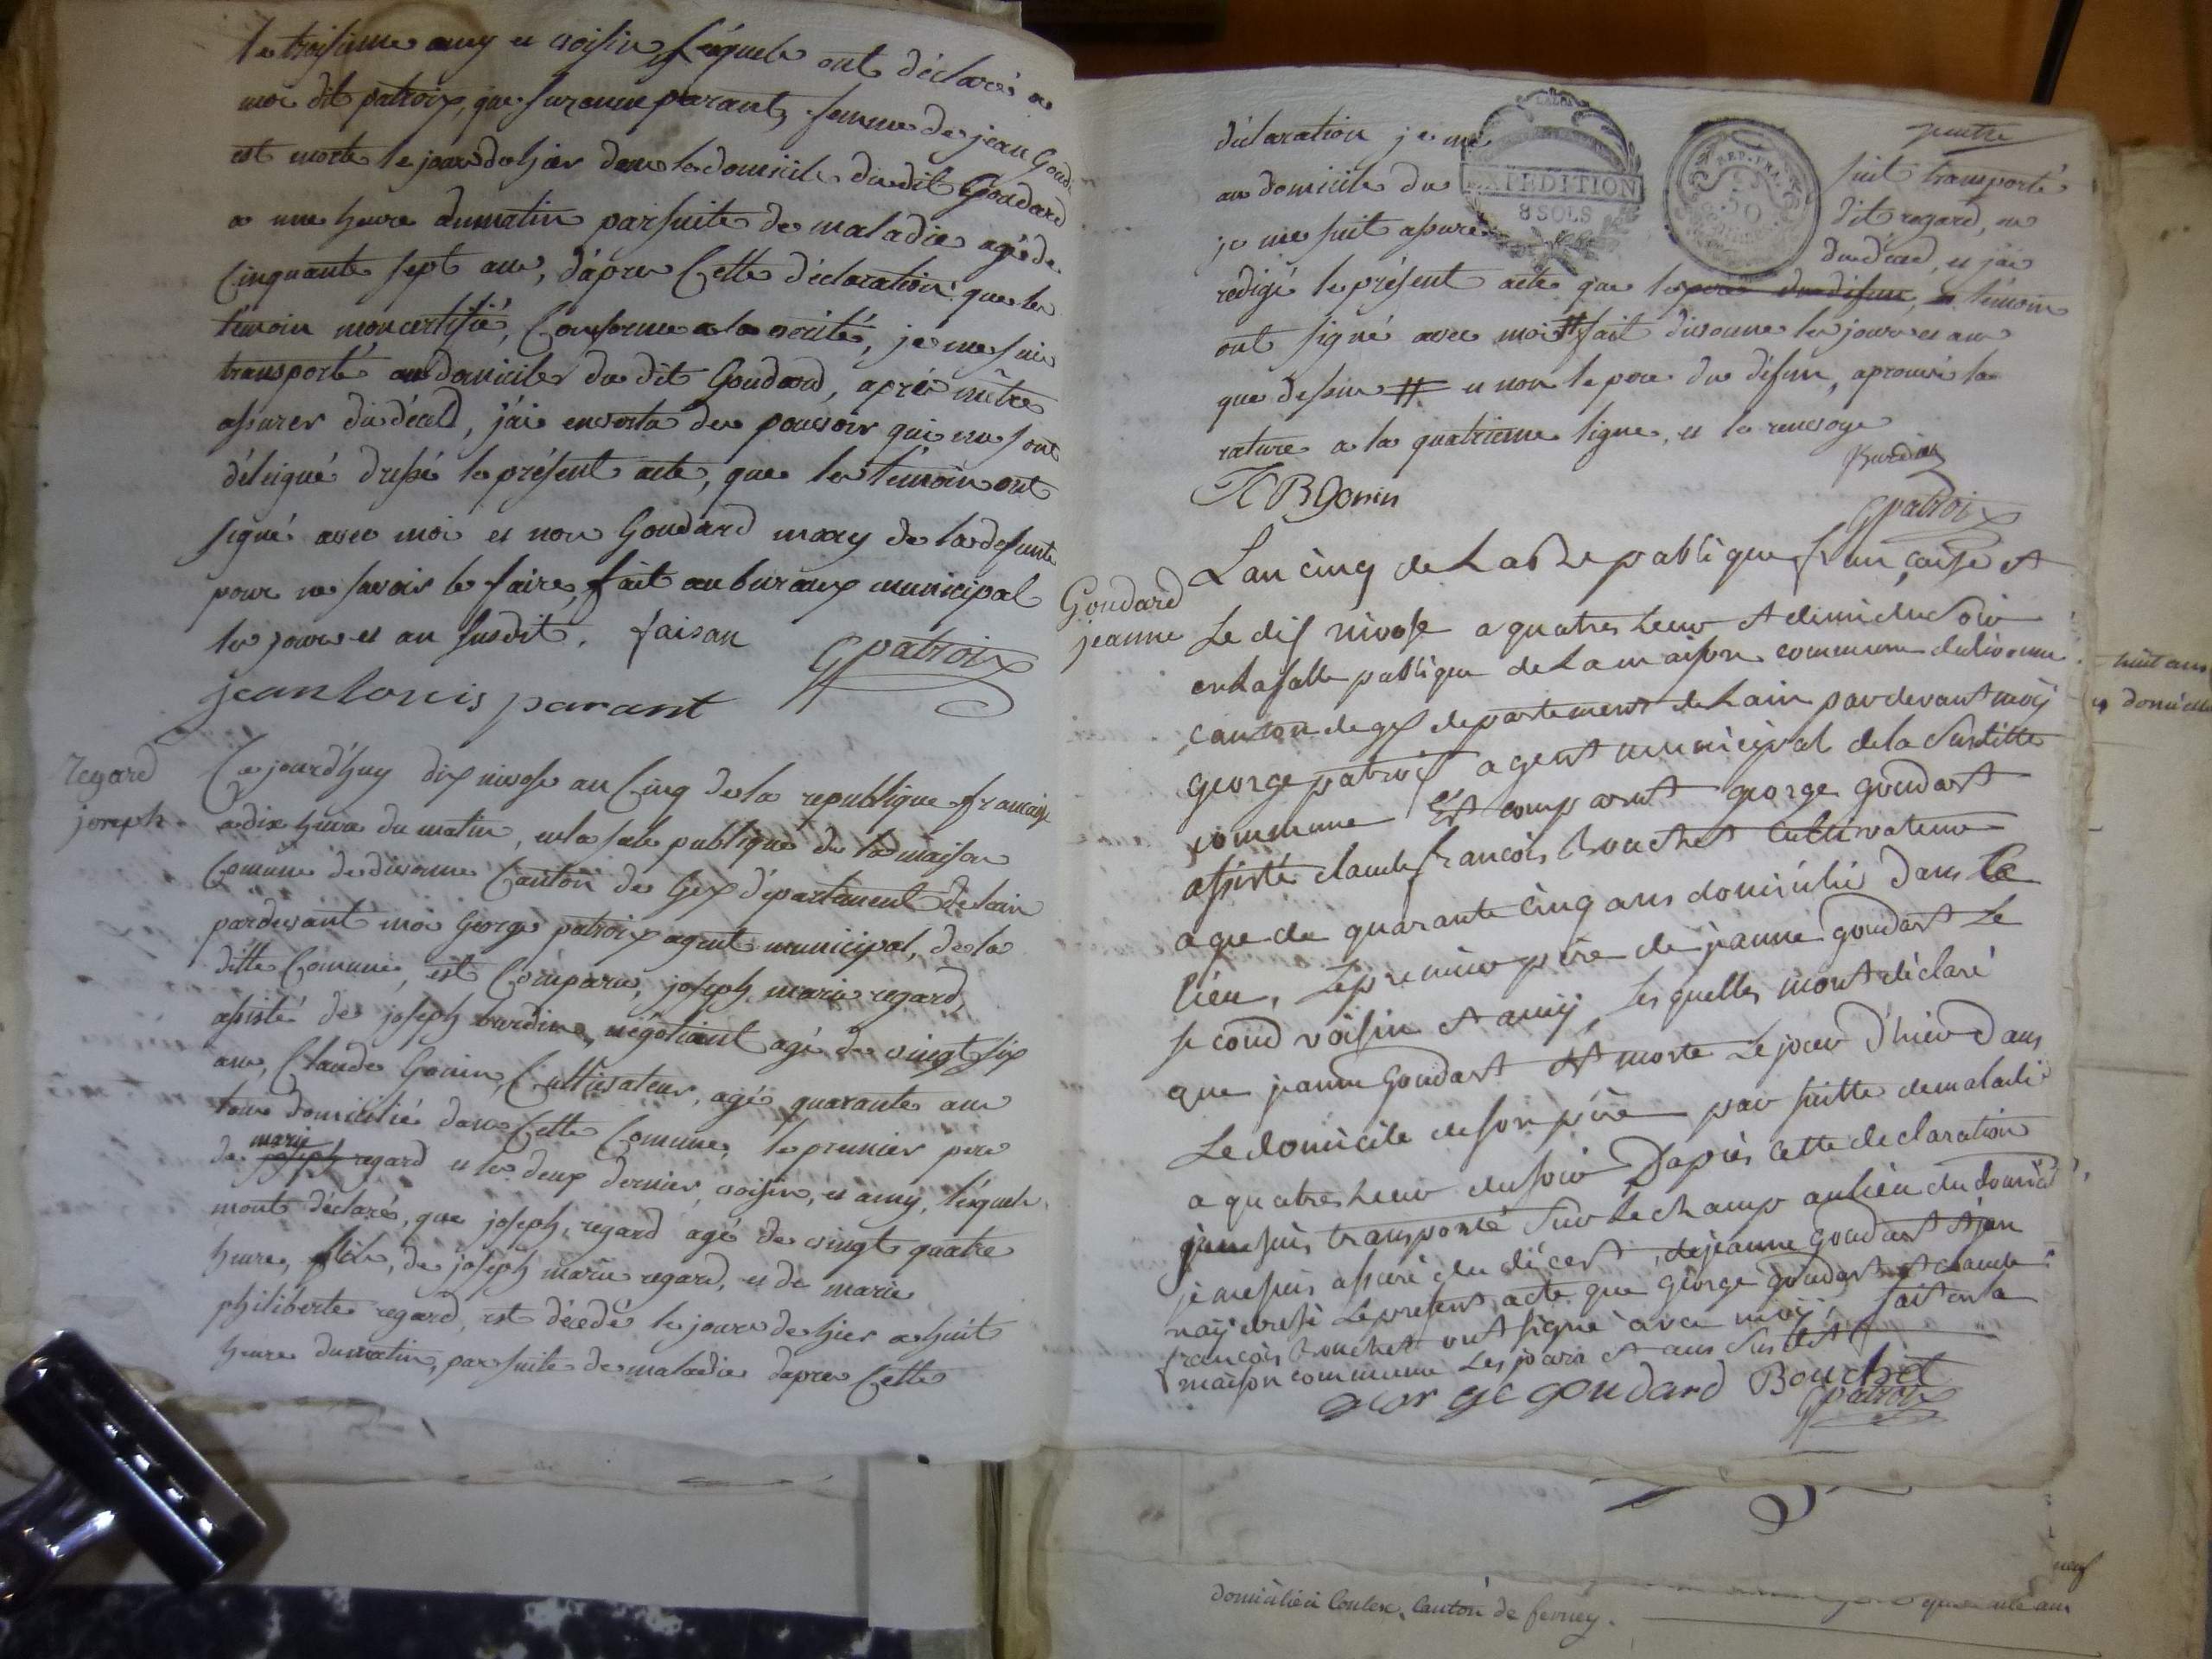 le troisieme amy et voisin lesquels ont déclaré a
moi dit patroix, que suzanne parant, femme de jean Goud
est morte le jour d'hier dans le domicile du dit Goudard
a une heure du matin par suite de maladie agé de
Cinquante sept ans, d'apres Cette déclaration que les
témoin mon certifié, Conforme a la vérité, je me suis
transporté au domicile du dit Goudard, aprés m'être
assurer du décéd, j'ai en vertu des pouvoir qui me sont
déleigué dressé le présent acte, que les témoin ont
signé avec moi et non Goudard mary de la defunte
pour ne savoir le faire, fait au buraux municipal
les jours et an susdit. faisan
GPatroix
jean louis parant
regard
joseph.
Ce jourd'huy dix nivose an Cinq de la republique francaise
a dix heure du matin, en la sale publique de la maison
Comune de divonne Canton de Gex département de lain
pardevant moi George patroix agent municipal, de la
ditte Comune, est Comparu, joseph marie regard,
assisté de joseph burdin, négotiant agé de vingt six
ans, Claude Gonin, Cultivateur, agé quarante ans
tous domicilié dans Cette Comune, le premier pere
marie
de joseph regard et les deux dernier voisin, et amy, lesquels
mont déclaré, que joseph regard agé de vingt quatre
heures, fils, de joseph marie regard, et de marie
philiberte regard, est décédé le jour de hier a huit
heure du matin, par suite de maladie dapres Cette
déclaration je me suit transporté
EXPEDITION
8 SOLS
REP. FRA.
au domicile du dit regard, ou
je me suit assuré du décéd, et j'ai
redigé le présent acte que le pere du defun, et témoin
ont signé avec moi # fait divonne les jours et an
que dessus # et non le pere du défun, aprouvé la
rature a la quatrieme ligne, et le renvoye
Burdin
C B Gonin
GPatroix
Goudard
jeanne
Lan cinq de La Republique francaise et
Le dix nivose a quatres heur et demi du Soir
en la salle publique de La maison commune de divonne
canton de gex departement de Lain par devant moij
george patroix agent municipal de la Susditte
commune Est comparut george goudart
assisté claude francois bouchet Cultivateur
age de quarante cinq ans domicilié dans Ce
lieu, Le premier père de jeanne goudart Le
second voisin et amij, les quelles m'ont déclaré
que jeanne goudart est morte Le jour d'hier dans
Le domicile de son père par suitte de maladie
a quatres heur du soir Dapres Cette declaration
je me suis transporté Sur Le champ au lieu du domicil
je me suis assuré du décest, de jeanne goudart et jen
naij dressé Le present acte que george goudart et claude
francois bouchet ont signé avec moij, fait en la
maison commune Les jours et ans Susdit
george goudard Bouchet
GPatroix
huit ans
domicilié
domicilié a Conlex, Canton de ferney.